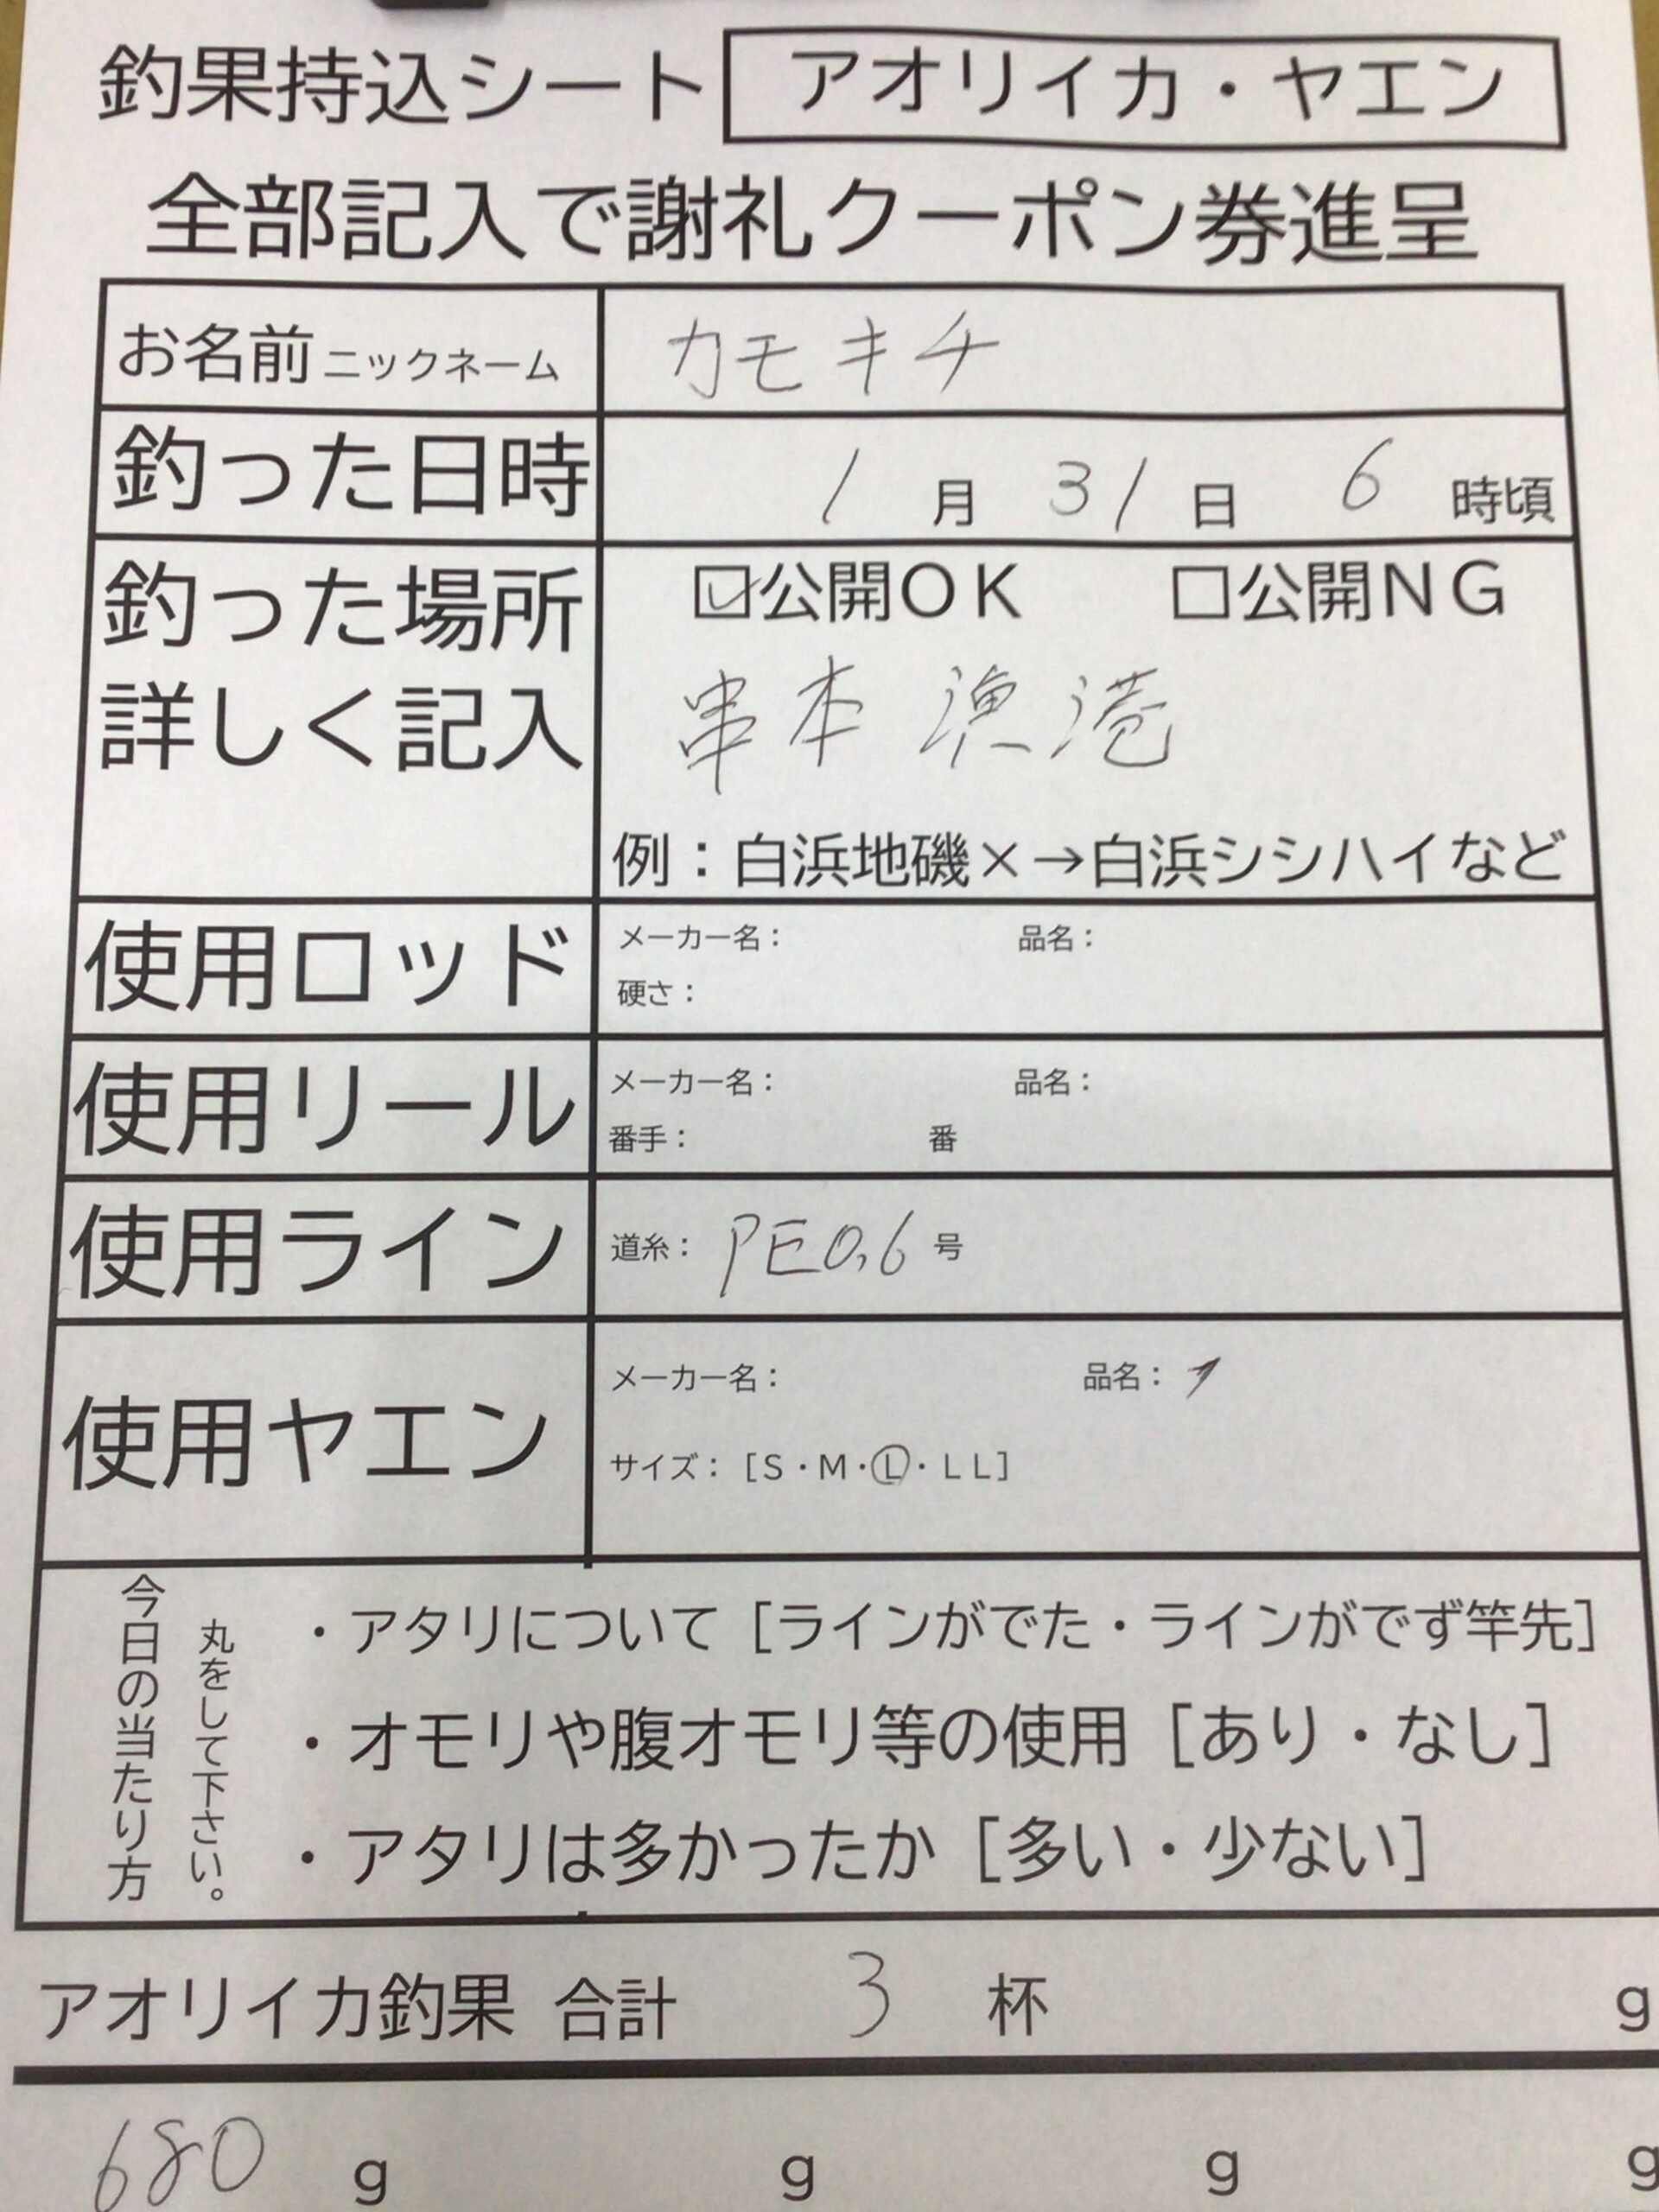 釣果持込シート アオリイカ・ヤエン
全部記入で謝礼クーポン券進呈
お名前ニックネーム カモキチ
釣った日時 1月31日 6時頃
釣った場所 ☑公開OK □公開NG
詳しく記入 串本漁港
例：白浜地磯×→白浜シシハイなど
使用ロッド メーカー名： 品名：
硬さ：
使用リール メーカー名： 品名：
番手： 番
使用ライン 道糸：PE0.6号
使用ヤエン メーカー名： 品名：
サイズ：[S・M・L・LL]
今日の当たり方
丸をして下さい。
・アタリについて［ラインがでた・ラインがでず竿先］
・オモリや腹オモリ等の使用［あり・なし］
・アタリは多かったか［多い・少ない］
アオリイカ釣果 合計 3 杯 g
680 g g g g